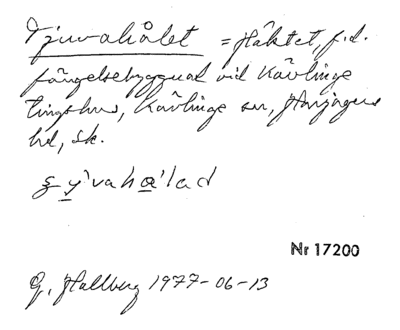 Tjuvahålet = Häktet, f.d.
fängelsebyggnad vid Kävlinge
tingshus, Kävlinge sn, Harjagers
hd, Sk.
ʒ y̱'vaho̱'lad
Nr 17200
G. Hallberg 1977-06-13